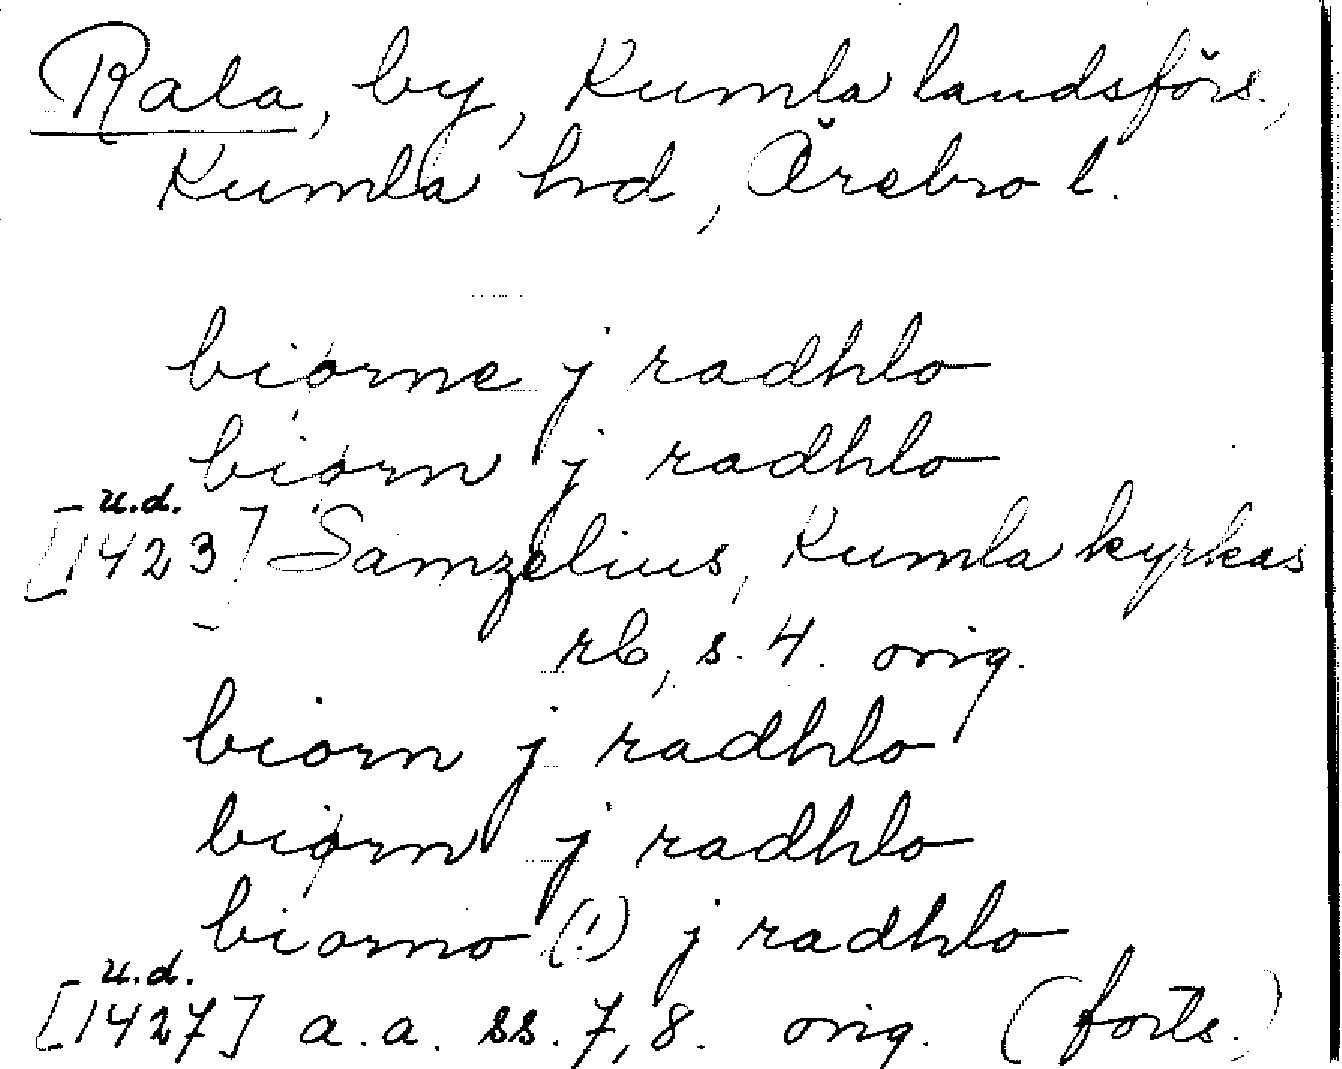 Rala, by, Kumla landsförs.,
Kumla hd, Örebro l.
biørne j radhlo
biørn j radhlo
u.d.
[1423] Samzelius, Kumla kyrkas
rb, s. 4. orig.
biorn j radhlo
biørn j radhlo
biorno (!) j radhlo
u.d.
[1427] a.a. ss. 7, 8. orig. (forts.)